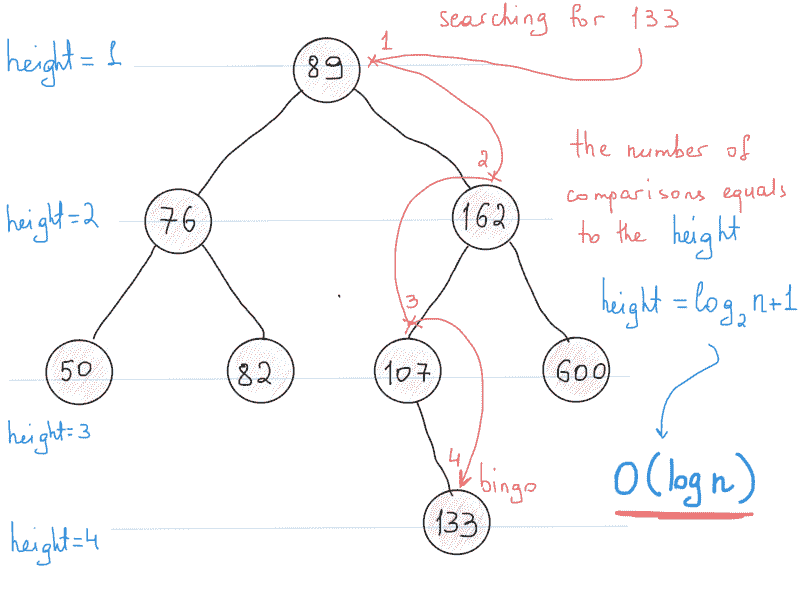 searching for 133
height = 1
1
89
2
the number of
comparisons equals
to the height
height=2
76
162
3
height = log₂ n+1
50
82
107
600
height=3
4
bingo
O(log n)
133
height=4